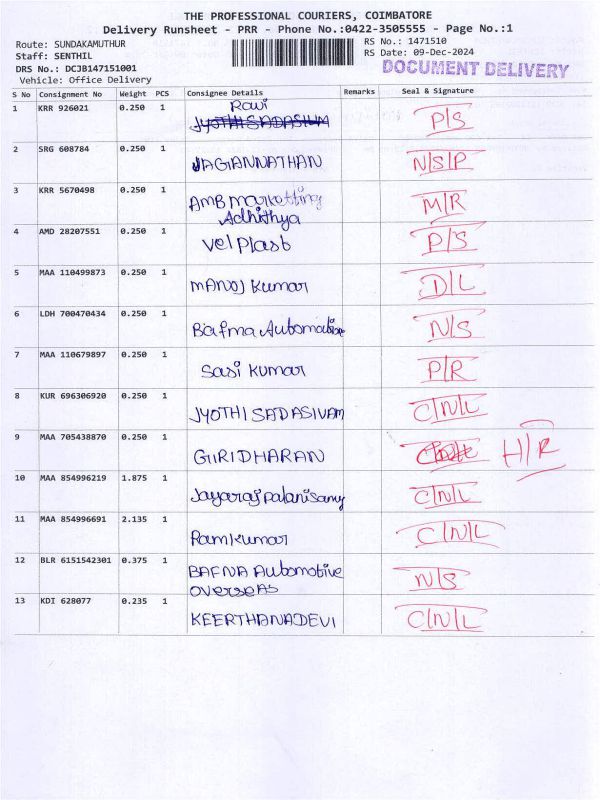 THE PROFESSIONAL COURIERS, COIMBATORE
Delivery Runsheet - PRR - Phone No.:0422-3505555 - Page No.:1
Route: SUNDAKAMUTHUR
RS No.: 1471510
Staff: SENTHIL
RS Date: 09-Dec-2024
DRS No.: DCJB147151001
DOCUMENT DELIVERY
Vehicle: Office Delivery
S No Consignment No Weight PCS Consignee Details Remarks Seal & Signature
Ravi
1 KRR 926021 0.250 1 JYOTHI SADASIVM P/S
2 SRG 608784 0.250 1 JAGANNATHAN N/S/P
3 KRR 5670498 0.250 1 AMB Marketting M/R
Adhithya
4 AMD 28207551 0.250 1 Vel Plast P/S
5 MAA 110499873 0.250 1 MANOJ Kumar D/L
6 LDH 700470434 0.250 1 Bafma Automative N/S
7 MAA 110679897 0.250 1 Sasi Kumar P/R
8 KUR 696306920 0.250 1 JYOTHI SADASIVAM C/N/L
9 MAA 705438870 0.250 1 GIRIDHARAN H/R
10 MAA 854996219 1.875 1 Jayaraj palanisamy C/N/L
11 MAA 854996691 2.135 1 Ramkumar C/N/L
12 BLR 6151542301 0.375 1 BAFNA Automotive N/S
overseas
13 KDI 628077 0.235 1 KEERTHANADEVI C/N/L